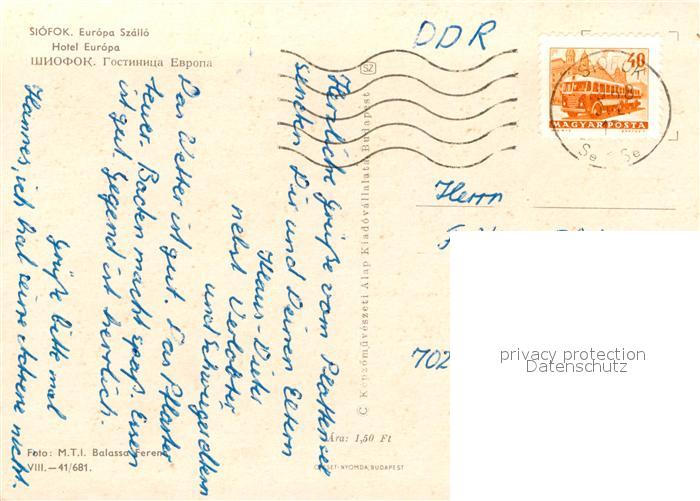 SIÓFOK. Európa Szálló
Hotel Európa
ШИОФОК. Гостиница Европа
DDR
SZ
40
MAGYAR POSTA
SIÓFOK
Herrn
702
privacy protection
Datenschutz
© Képzőművészeti Alap Kiadóvállalata, Budapest
Ára: 1,50 Ft
OFFSET-NYOMDA, BUDAPEST
Foto: M.T.I. Balassa Ferenc
VIII.—41/681.
Herzliche Grüße vom Plattensee
senden Dir und Deinen Eltern
Klaus-Dieter
nebst Verlobter
und Schwiegereltern
Das Wetter ist gut. Das Pflaster
teuer. Baden macht Spaß. Essen
ist gut. Gegend ist herrlich.
Grüße bitte mal
Hannes, ich hab seine Adresse nicht.